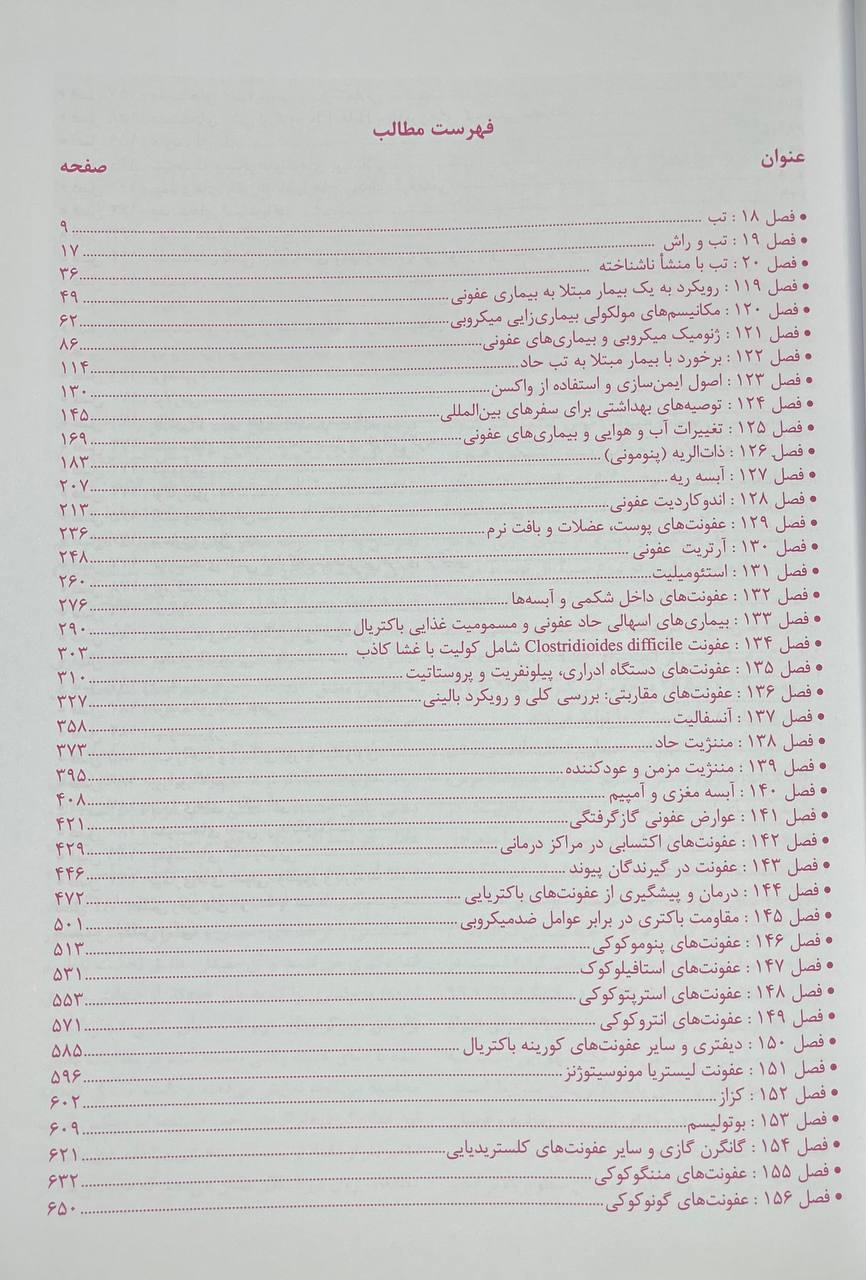 فهرست مطالب
عنوان صفحه
• فصل ۱۸ : تب ۹
• فصل ۱۹ : تب و راش ۱۷
• فصل ۲۰ : تب با منشأ ناشناخته ۳۶
• فصل ۱۱۹ : رویکرد به یک بیمار مبتلا به بیماری عفونی ۴۹
• فصل ۱۲۰ : مکانیسم‌های مولکولی بیماری‌زایی میکروبی ۶۲
• فصل ۱۲۱ : ژنومیک میکروبی و بیماری‌های عفونی ۸۶
• فصل ۱۲۲ : برخورد با بیمار مبتلا به تب حاد ۱۱۴
• فصل ۱۲۳ : اصول ایمن‌سازی و استفاده از واکسن ۱۳۰
• فصل ۱۲۴ : توصیه‌های بهداشتی برای سفرهای بین‌المللی ۱۴۵
• فصل ۱۲۵ : تغییرات آب و هوایی و بیماری‌های عفونی ۱۶۹
• فصل ۱۲۶ : ذات‌الریه (پنومونی) ۱۸۳
• فصل ۱۲۷ : آبسه ریه ۲۰۷
• فصل ۱۲۸ : اندوکاردیت عفونی ۲۱۳
• فصل ۱۲۹ : عفونت‌های پوست، عضلات و بافت نرم ۲۳۶
• فصل ۱۳۰ : آرتریت عفونی ۲۴۸
• فصل ۱۳۱ : استئومیلیت ۲۶۰
• فصل ۱۳۲ : عفونت‌های داخل شکمی و آبسه‌ها ۲۷۶
• فصل ۱۳۳ : بیماری‌های اسهالی حاد عفونی و مسمومیت غذایی باکتریال ۲۹۰
• فصل ۱۳۴ : عفونت Clostridioides difficile شامل کولیت با غشا کاذب ۳۰۳
• فصل ۱۳۵ : عفونت‌های دستگاه ادراری، پیلونفریت و پروستاتیت ۳۱۰
• فصل ۱۳۶ : عفونت‌های مقاربتی: بررسی کلی و رویکرد بالینی ۳۲۷
• فصل ۱۳۷ : آنسفالیت ۳۵۸
• فصل ۱۳۸ : مننژیت حاد ۳۷۳
• فصل ۱۳۹ : مننژیت مزمن و عودکننده ۳۹۵
• فصل ۱۴۰ : آبسه مغزی و آمپیم ۴۰۸
• فصل ۱۴۱ : عوارض عفونی گازگرفتگی ۴۲۱
• فصل ۱۴۲ : عفونت‌های اکتسابی در مراکز درمانی ۴۲۹
• فصل ۱۴۳ : عفونت در گیرندگان پیوند ۴۴۶
• فصل ۱۴۴ : درمان و پیشگیری از عفونت‌های باکتریایی ۴۷۲
• فصل ۱۴۵ : مقاومت باکتری در برابر عوامل ضدمیکروبی ۵۰۱
• فصل ۱۴۶ : عفونت‌های پنوموکوکی ۵۱۳
• فصل ۱۴۷ : عفونت‌های استافیلوکوک ۵۳۱
• فصل ۱۴۸ : عفونت‌های استرپتوکوکی ۵۵۳
• فصل ۱۴۹ : عفونت‌های انتروکوکی ۵۷۱
• فصل ۱۵۰ : دیفتری و سایر عفونت‌های کورینه باکتریال ۵۸۵
• فصل ۱۵۱ : عفونت لیستریا مونوسیتوژنز ۵۹۶
• فصل ۱۵۲ : کزاز ۶۰۲
• فصل ۱۵۳ : بوتولیسم ۶۰۹
• فصل ۱۵۴ : گانگرن گازی و سایر عفونت‌های کلستریدیایی ۶۲۱
• فصل ۱۵۵ : عفونت‌های مننگوکوکی ۶۳۲
• فصل ۱۵۶ : عفونت‌های گونوکوکی ۶۵۰